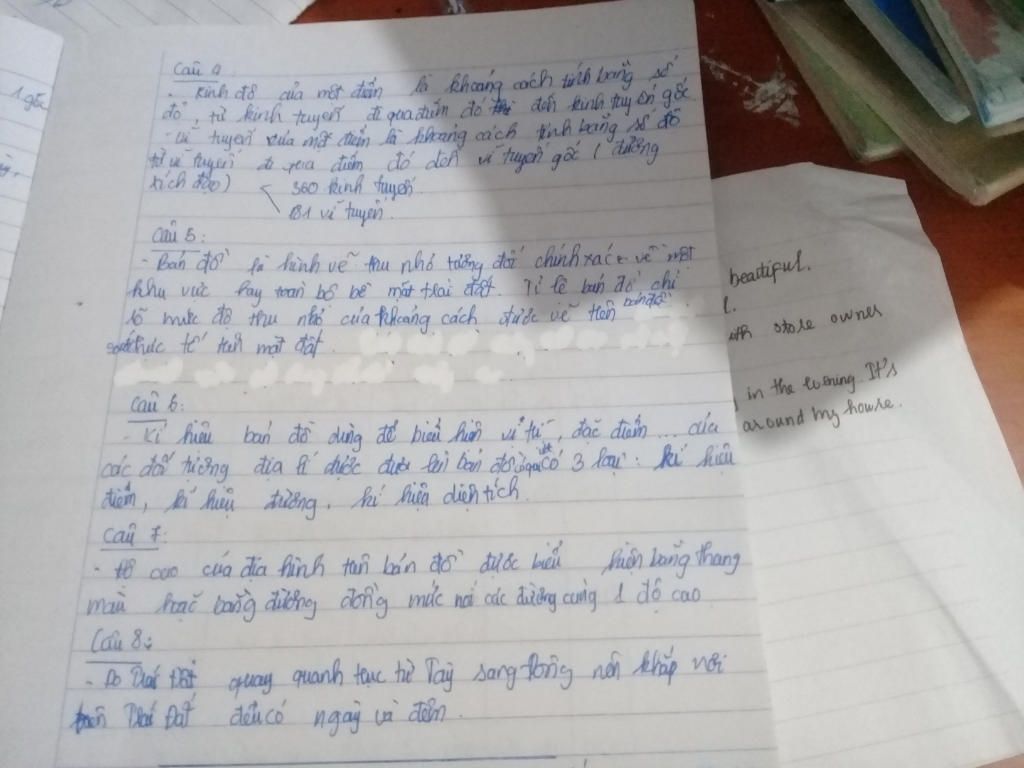 1 gốc
Câu 4
- Kinh độ của một điểm là khoảng cách tính bằng số
độ, từ kinh tuyến đi qua điểm đó đến kinh tuyến gốc
- vĩ tuyến của một điểm là khoảng cách tính bằng số độ
từ vĩ tuyến đi qua điểm đó đến vĩ tuyến gốc ( đường
xích đạo)
360 kinh tuyến
181 vĩ tuyến.
Câu 5:
- Bản đồ là hình vẽ thu nhỏ tương đối chính xác về một
khu vực hay toàn bộ bề mặt trái đất. Tỉ lệ bản đồ chỉ
rõ mức độ thu nhỏ của khoảng cách được vẽ trên bản đồ
thực tế trên mặt đất.
Câu 6:
- Kí hiệu bản đồ dùng để biểu hiện vị trí, đặc điểm... của
các đối tượng địa lí được đưa lên bản đồ có 3 loại: kí hiệu
điểm, kí hiệu đường, kí hiệu diện tích.
Câu 7:
- độ cao của địa hình trên bản đồ được biểu hiện bằng thang
màu hoặc bằng đường đồng mức nơi các đường cùng 1 độ cao
Câu 8:
- Do Trái Đất quay quanh trục từ Tây sang Đông nên khắp nơi
trên Trái Đất đều có ngày và đêm.
beatiful.
store owner
in the evening. It's
around my house.